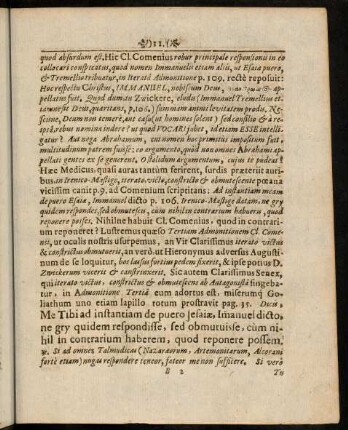 )11.(
quod absurdum est. Hic Cl. Comenius robur principale responsionis in eo
collocari conspicatus, quod nomen Immanuelis etiam aliis, ut Esaiæ puero,
& Tremellio tribuatur, in iteratâ Admonitione p. 109. rectè reposuit:
Hoc respectu Christus, IMMANUEL, nobiscum Deus,
appellatus fuit. Quod damnat Zwickere, eludis; Immanuel Tremellius et-
iamne est Deus, quæritans, p. 106.) summam animi levitatem prodis. Ne-
scisne, Deum non temerè, aut casu (ut homines solent) sed consilio & à re
ipsâ rebus nomina indere? ut quod VOCARI jubet, id etiam ESSE intelli-
gatur? Aut nega Abrahamum, cui nomen hoc primitùs impositum fuit,
multitudinum patrem fuisse: eo argumento, quòd non omnes Abrahami ap-
pellati gentes ex se genuerint. O stolidum argumentum, cujus te pudeat?
Hæc Medicus, quasi auras tantùm ferirent, surdis præteriit auri-
bus, in Irenico-Mastige, iterato victo, constricto & obmutescente pœana
vicissim canit p. 9. ad Comenium scriptitans: Ad instantiam meam
de puero Esaiæ, Immanuel dicto p. 106. Irenico-Mastige datam, ne gry
quidem respondes, sed obmutescis, cùm nihil in contrarium habueris, quod
reponere posses. Nihilne habuit Cl. Comenius, quod in contrari-
um reponeret? Lustremus quæso Tertiam Admonitionem Cl. Come-
nii, ut oculis nostris usurpemus, an Vir Clarissimus iterato victus
& constrictus obmutuerit, an verò, ut Hieronymus adversus Augusti-
num de se loquitur, bos lassus fortius pedem fixerit, & ipse potius D.
Zwickerum vicerit & constrinxerit. Sic autem Clarissimus Senex,
qui iterato victus, constrictus & obmutescens ab Autagonistâ fingeba-
tur, in Admonitione Tertiâ eum adortus est, miserumq; Go-
liathum uno etiam lapillo rotum prostravit pag. 35. Dicis,
Me Tibi ad instantiam de puero Jesaiæ, Imanuel dicto,
ne gry quidem respondisse, sed obmutuisse, cùm ni-
hil in contrarium haberem, quod reponere possem.
R. Si ad omnes Talmudicas (Nazaræorum, Artemonitarum, Alcorani
fortè etiam) nugas respondere teneor, fateor me non suffisere. Si verò
B 2 Tu